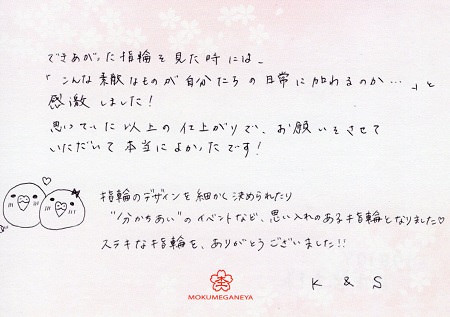 できあがった指輪を見た時には、
「こんな素敵なものが自分たちの日常に加わるのか…」と
感激しました!
思っていた以上の仕上がりで、お願いをさせて
いただいて本当によかったです!
指輪のデザインを細かく決められたり
"分かちあい"のイベントなど、思い入れのある指輪となりました♡
ステキな指輪を、ありがとうございました!!
K & S
MOKUMEGANEYA